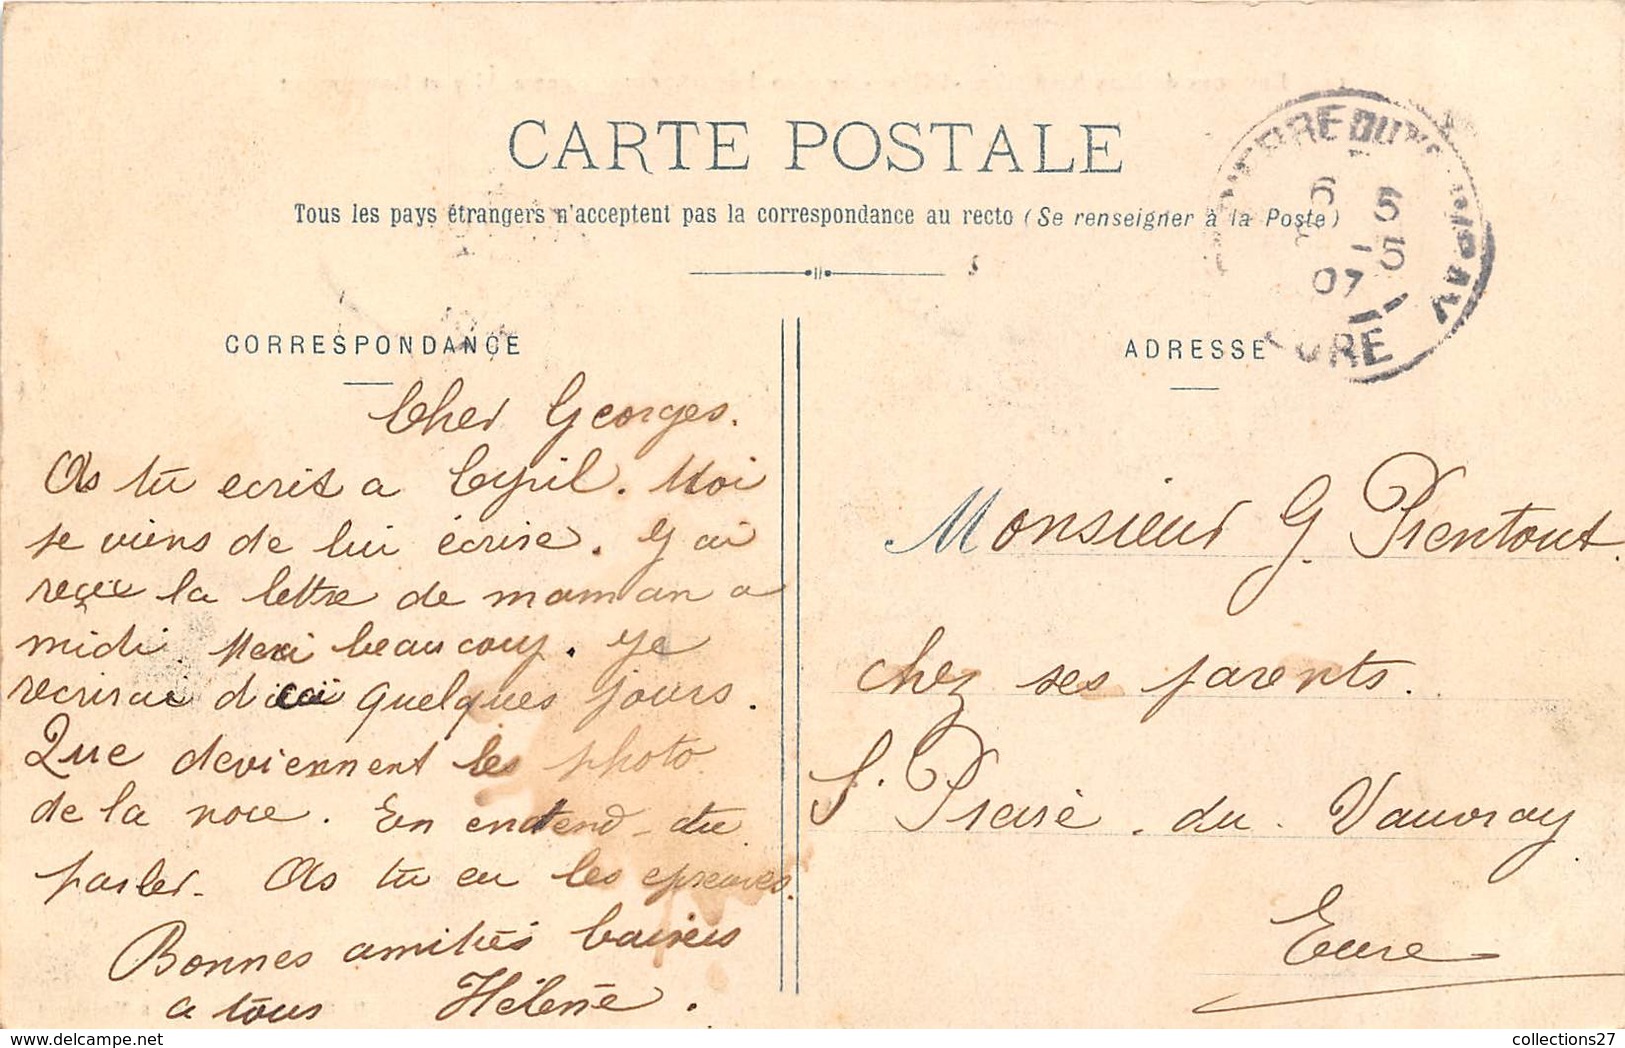 CARTE POSTALE
Tous les pays étrangers n'acceptent pas la correspondance au recto (Se renseigner à la Poste)
CORRESPONDANCE
Cher Georges.
As tu ecrit a Cyril. Moi
je viens de lui écrire. J'ai
reçue la lettre de maman a
midi. Merci beaucoup. Je
recrirai d'ici quelques jours.
Que deviennent les photo
de la noce. En entend-tu
parler. As tu eu les epreuves.
Bonnes amitiés baisers
a tous Hélène.
ADRESSE
Monsieur G. Prentout.
chez ses parents.
S. Pierre. du. Vauvray
Eure
PIERRE DU VAUVRAY
5 5
5
07
EURE
collections27
www.delcampe.net